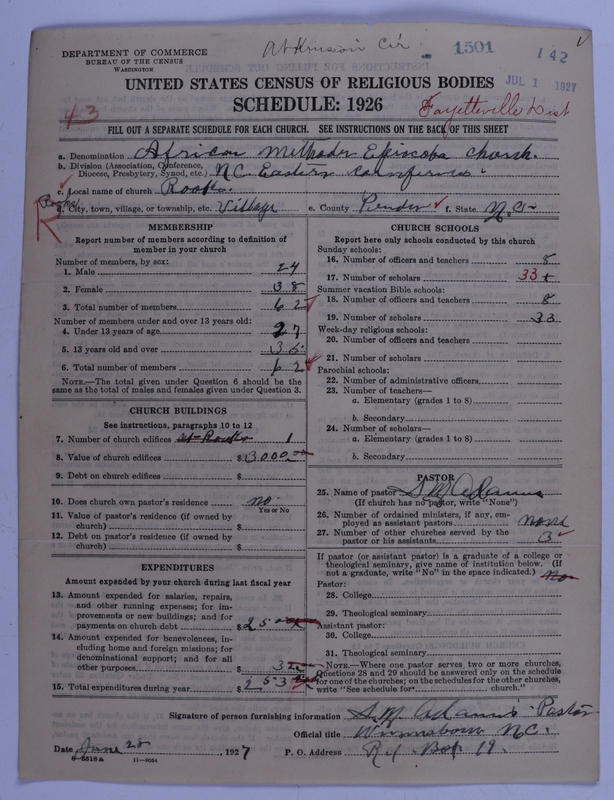 Atkinson Cir.
1501
142
DEPARTMENT OF COMMERCE
BUREAU OF THE CENSUS
WASHINGTON
UNITED STATES CENSUS OF RELIGIOUS BODIES
JUL 1 1927
SCHEDULE: 1926
43
Fayetteville Dist
FILL OUT A SEPARATE SCHEDULE FOR EACH CHURCH. SEE INSTRUCTIONS ON THE BACK OF THIS SHEET
a. Denomination African Methodis Episcoba Church.
b. Division (Association, Conference, Diocese, Presbytery, Synod, etc.) N.C. Eastern Conference
c. Local name of church Rooks.
Rooks
d. City, town, village, or township, etc. Village e. County Pender f. State N.C.
MEMBERSHIP
Report number of members according to definition of
member in your church
Number of members, by sex:
1. Male 24
2. Female 38
3. Total number of members 62
Number of members under and over 13 years old:
4. Under 13 years of age 27
5. 13 years old and over 35
6. Total number of members 62
NOTE.—The total given under Question 6 should be
the same as the total of males and females given under Question 3.
CHURCH BUILDINGS
See instructions, paragraphs 10 to 12
7. Number of church edifices at Rooks 1
8. Value of church edifices $3000
9. Debt on church edifices $
10. Does church own pastor's residence no
Yes or No
11. Value of pastor's residence (if owned by
church) $
12. Debt on pastor's residence (if owned by
church) $
EXPENDITURES
Amount expended by your church during last fiscal year
13. Amount expended for salaries, repairs,
and other running expenses; for im-
provements or new buildings; and for
payments on church debt $250
14. Amount expended for benevolences, in-
cluding home and foreign missions; for
denominational support; and for all
other purposes $3
15. Total expenditures during year $253
CHURCH SCHOOLS
Report here only schools conducted by this church
Sunday schools:
16. Number of officers and teachers 8
17. Number of scholars 33
Summer vacation Bible schools:
18. Number of officers and teachers 8
19. Number of scholars 33
Week-day religious schools:
20. Number of officers and teachers
21. Number of scholars
Parochial schools:
22. Number of administrative officers
23. Number of teachers—
a. Elementary (grades 1 to 8)
b. Secondary
24. Number of scholars—
a. Elementary (grades 1 to 8)
b. Secondary
PASTOR
25. Name of pastor S. M. Adams
(If church has no pastor, write "None")
26. Number of ordained ministers, if any, em-
ployed as assistant pastors none
27. Number of other churches served by the
pastor or his assistants 3
If pastor (or assistant pastor) is a graduate of a college or
theological seminary, give name of institution below. (If
not a graduate, write "No" in the space indicated.) no
Pastor:
28. College
29. Theological seminary
Assistant pastor:
30. College
31. Theological seminary
NOTE.—Where one pastor serves two or more churches,
Questions 28 and 29 should be answered only on the schedule
for one of the churches; on the schedules for the other churches,
write "See schedule for church."
Signature of person furnishing information S. M. Adams Pastor
Official title Winnabow N.C.
Date June 28, 1927 P. O. Address R. 1 Box 19.
8-5518a 11-9054